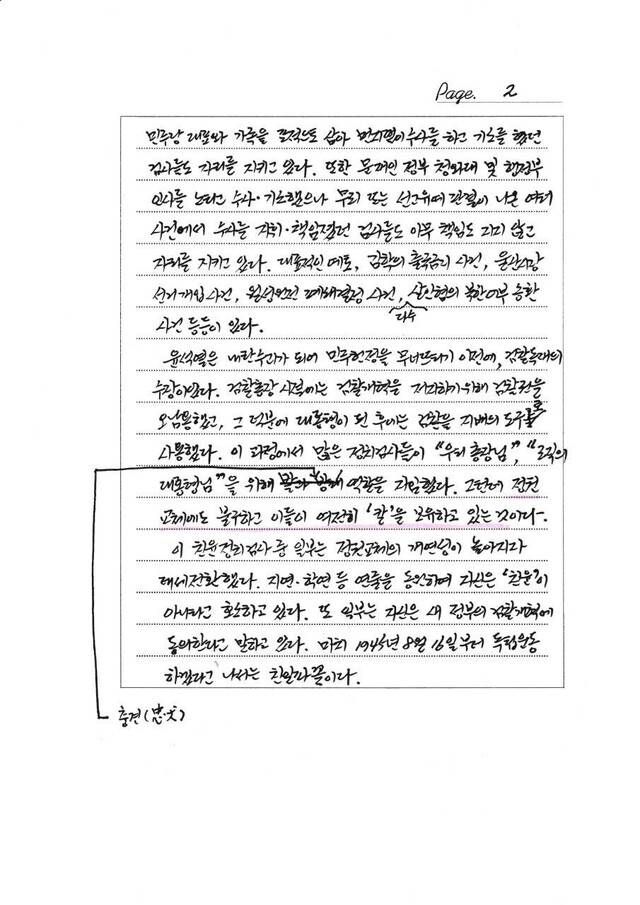 Page. 2
민주당 대표와 가족을 표적으로 삼아 먼지털이 수사를 하고 기소를 했던
검사들도 자리를 지키고 있다. 또한 문재인 정부 청와대 및 행정부
인사를 노리고 수사·기소했으나 무죄 또는 선고유예 판결이 나온 여러
사건에서 수사를 지휘·책임졌던 검사들도 아무 책임도 지지 않고
자리를 지키고 있다. 대표적인 예로, 김학의 출국금지 사건, 울산시장
선거개입 사건, 월성원전 폐쇄결정 사건, 살인혐의 북한어부 송환
다수
사건 등등이 있다.
윤석열은 내란수괴가 되어 민주헌정을 무너뜨리기 이전에, 검찰독재의
수장이었다. 검찰총장 시절에는 검찰개혁을 저지하기 위해 검찰권을
오남용했고, 그 덕분에 대통령이 된 후에는 검찰을 지배의 도구로
사용했다. 이 과정에서 많은 정치검사들이 "우리 총장님", "조직의
대통령님"을 위해 역할을 자임했다. 그런데 정권
교체에도 불구하고 이들이 여전히 '칼'을 보유하고 있는 것이다.
이 친윤 정치검사 중 일부는 정권교체의 개연성이 높아지자
태세전환했다. 지연·학연 등 연줄을 동원하며 자신은 '친윤'이
아니라고 호소하고 있다. 또 일부는 자신은 새 정부의 검찰개혁에
동의한다고 말하고 있다. 마치 1945년 8월 16일부터 독립운동
하겠다고 나서는 친일파 꼴이다.
충견(忠犬)